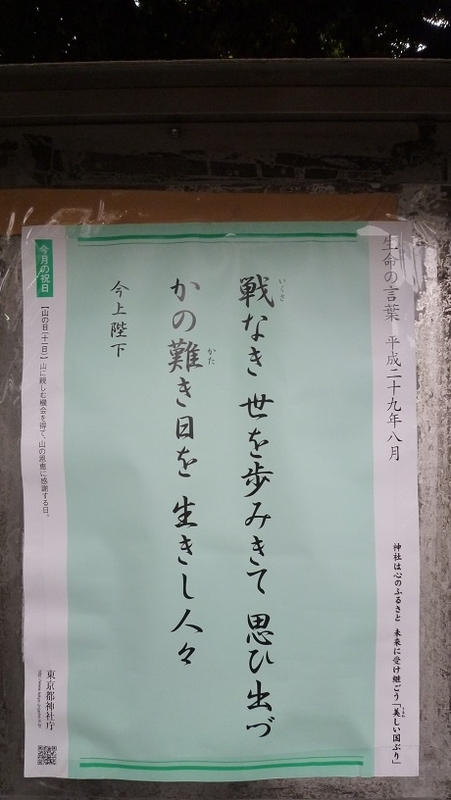 生命の言葉 平成二十九年八月
神社は心のふるさと 未来に受け継ごう「美しい国ぶり」
うま
戦なき 世を歩みきて 思ひ出づ
いくさ
かの難き日を 生きし人々
かた
今上陛下
今月の祝日
【山の日(十一日)】山に親しむ機会を得て、山の恩恵に感謝する日。
東京都神社庁